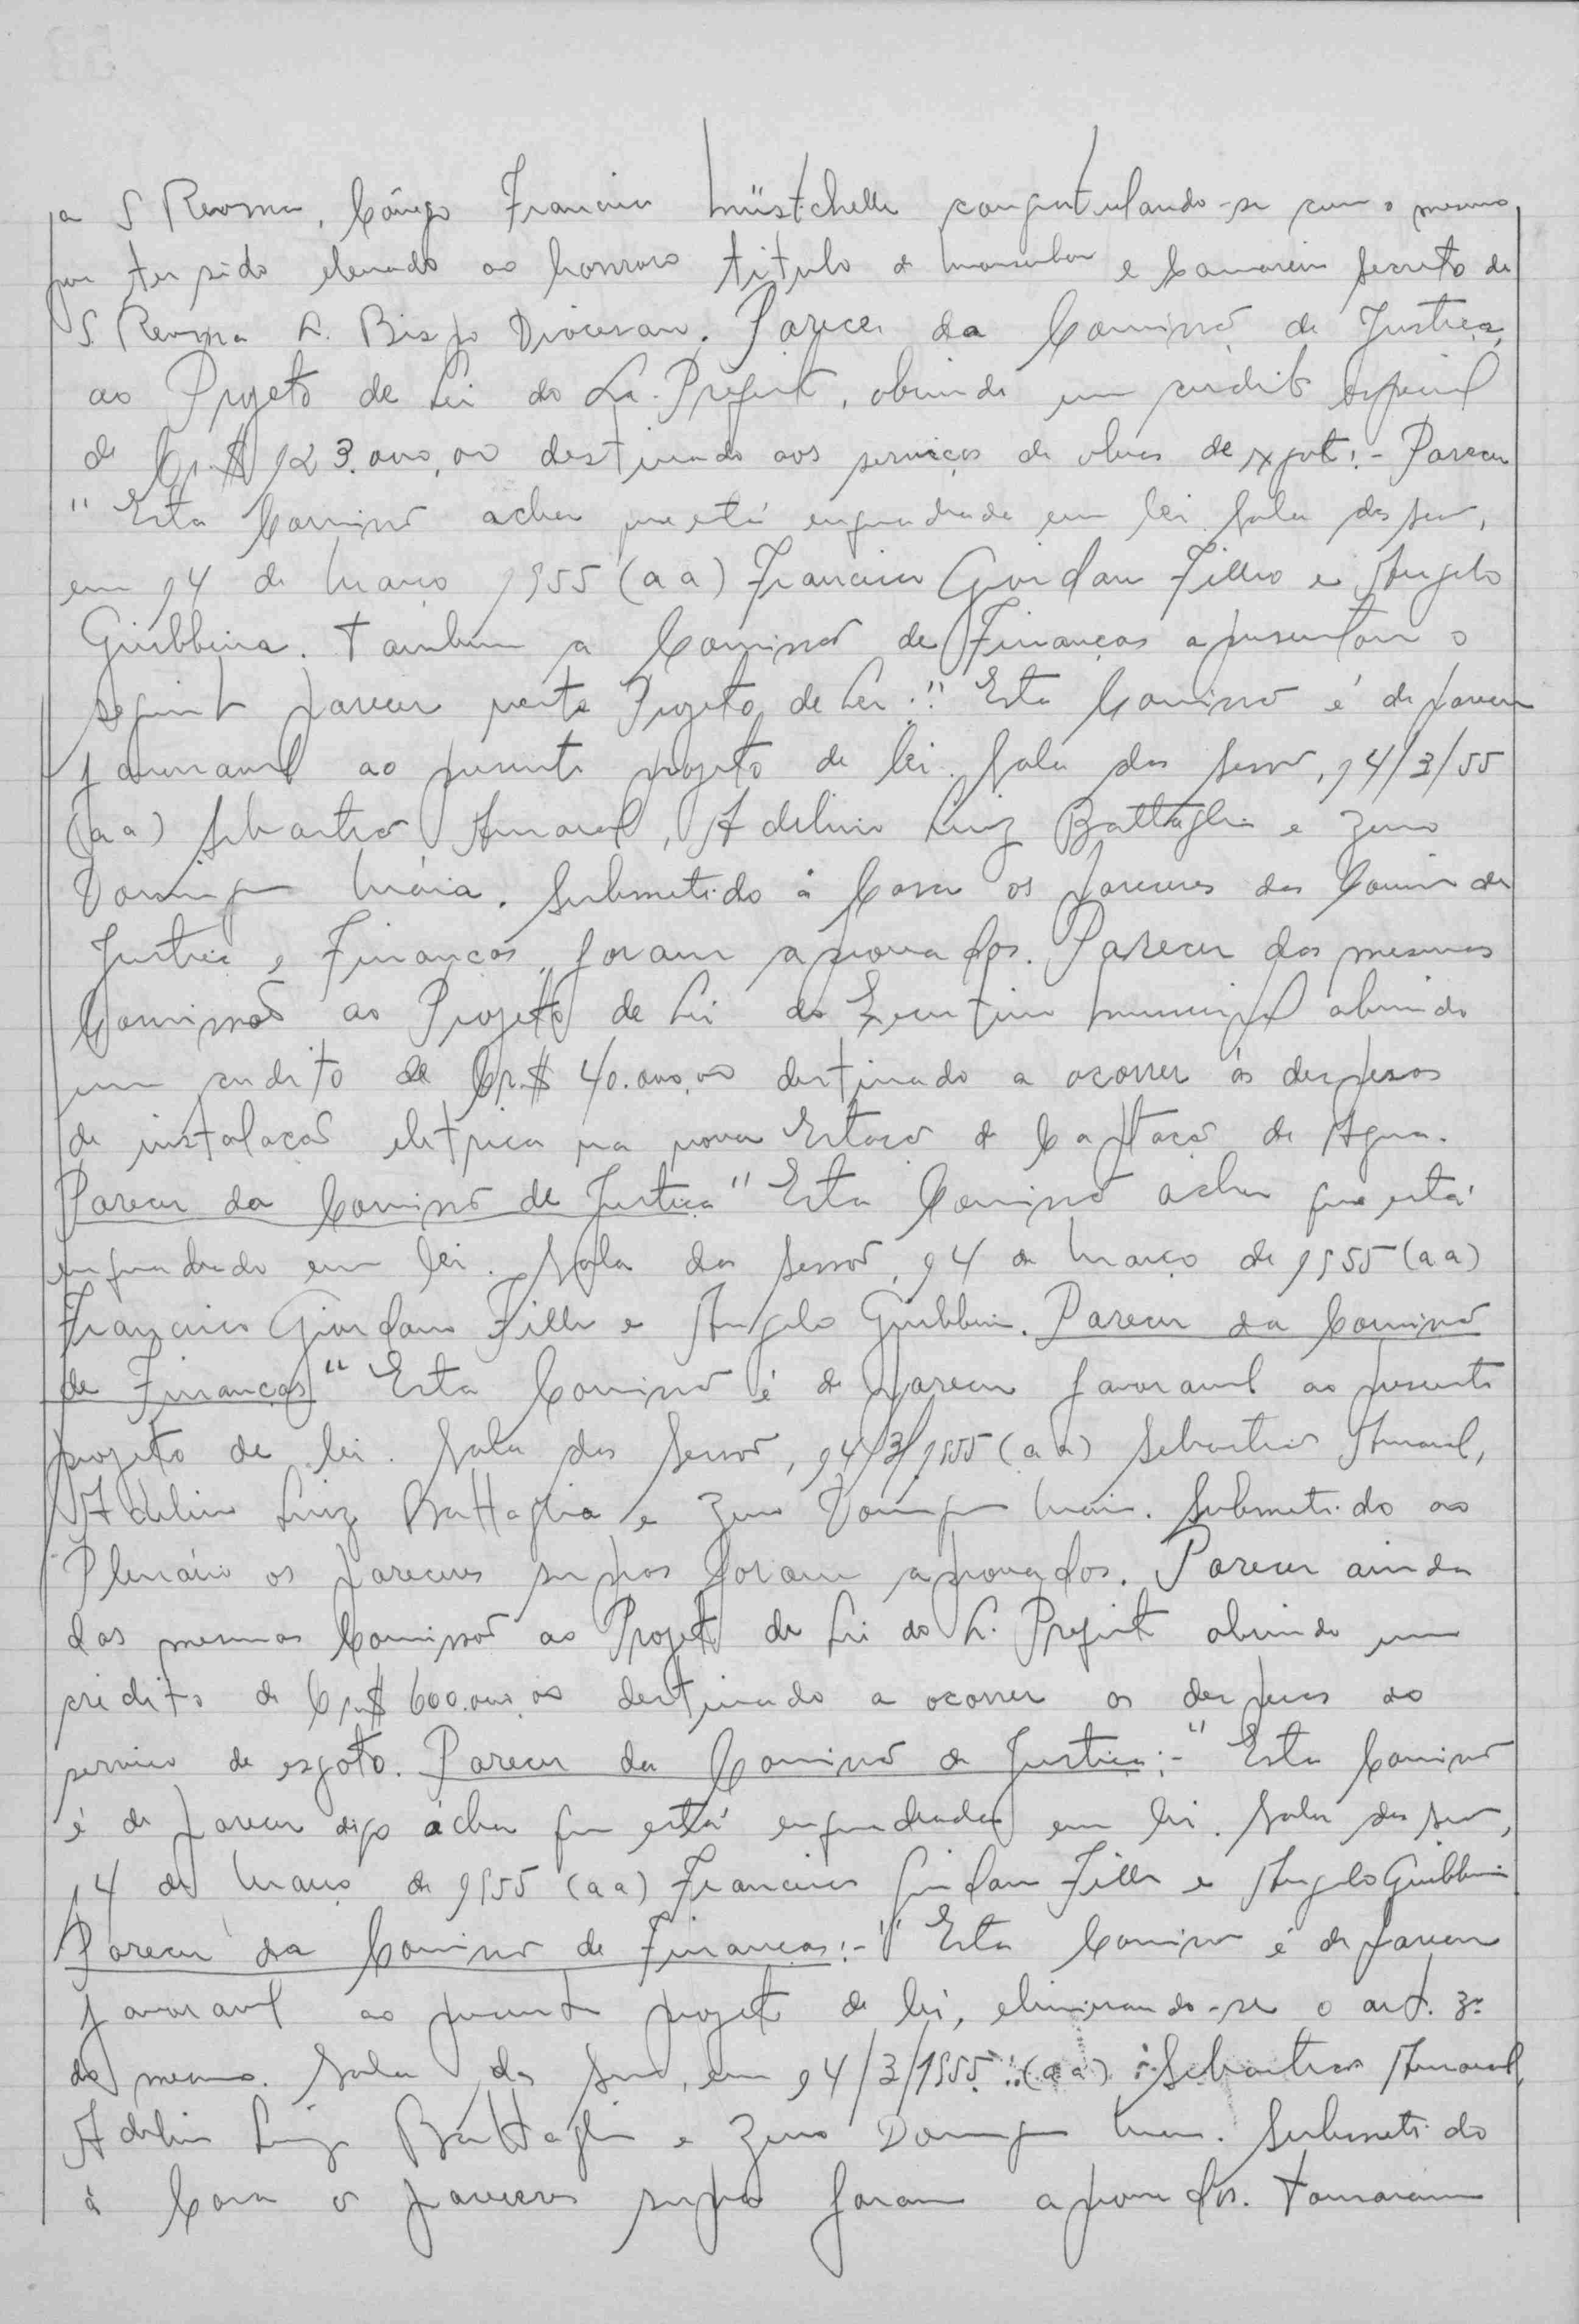 a S Revma, Cônego Francisco Mütschelle congratulando-se com o mesmo
por ter sido elevado ao honroso titulo de Monsenhor e Camareiro secreto de
S Revma D. Bispo Diocesano. Parecer da Comissão de Justiça,
ao Projeto de Lei do Sr. Prefeito, abrindo um credito especial
de Cr.$ 123.000,00 destinado aos serviços de obras de exgoto:- Parecer
" Esta Comissão acha que está enquadrado em lei. Sala das sessões,
em 14 de Março 1955 (aa) Francisco Giordano Filho e Angelo
Giubbina. Tambem a Comissão de Finanças apresentou o
seguinte parecer neste Projeto de Lei:" Esta Comissão é de parecer
favoravel ao presente projeto de lei. Sala das Sessões, 14/3/55
(aa) Sebastião Amaral, Adelino Luiz Battaglia e Zeno
Domingos Maia. Submetido á Casa os pareceres das Comissões de
Justiça e Finanças, foram aprovados. Parecer das mesmas
Comissões ao Projeto de Lei do Executivo Municipal abrindo
um credito de Cr.$ 40.000,00 destinado a ocorrer ás despesas
de instalação eletrica na nova Estação de Captação de Agua.
Parecer da Comissão de Justiça " Esta Comissão acha que está
enquadrado em lei. Sala das Sessões, 14 de Março de 1955 (aa)
Francisco Giordano Filho e Angelo Giubbina. Parecer da Comissão
de Finanças " Esta Comissão é de parecer favoravel ao presente
projeto de lei. Sala das Sessões, 14/3/1955 (aa) Sebastião Amaral,
Adelino Luiz Battaglia e Zeno Domingos Maia. Submetido ao
Plenário os pareceres supras foram aprovados. Parecer ainda
das mesmas Comissões ao Projeto de Lei do Sr. Prefeito abrindo um
crédito de Cr.$ 600.000,00 destinado a ocorrer as despesas do
serviço de esgoto. Parecer da Comissão de Justiça:- " Esta Comissão
é de parecer digo acha que está enquadrado em lei. Sala das sessões,
14 de Março de 1955 (aa) Francisco Giordano Filho e Angelo Giubbina
Parecer da Comissão de Finanças:- " Esta Comissão é de parecer
favoravel ao presente projeto de lei, eliminando-se o art. 3º
do mesmo. Sala das Sessões, em 14/3/1955. (aa) Sebastião Amaral,
Adelino Luiz Battaglia e Zeno Domingos Maia. Submetido
á Casa os pareceres supras foram aprovados. Tomaram